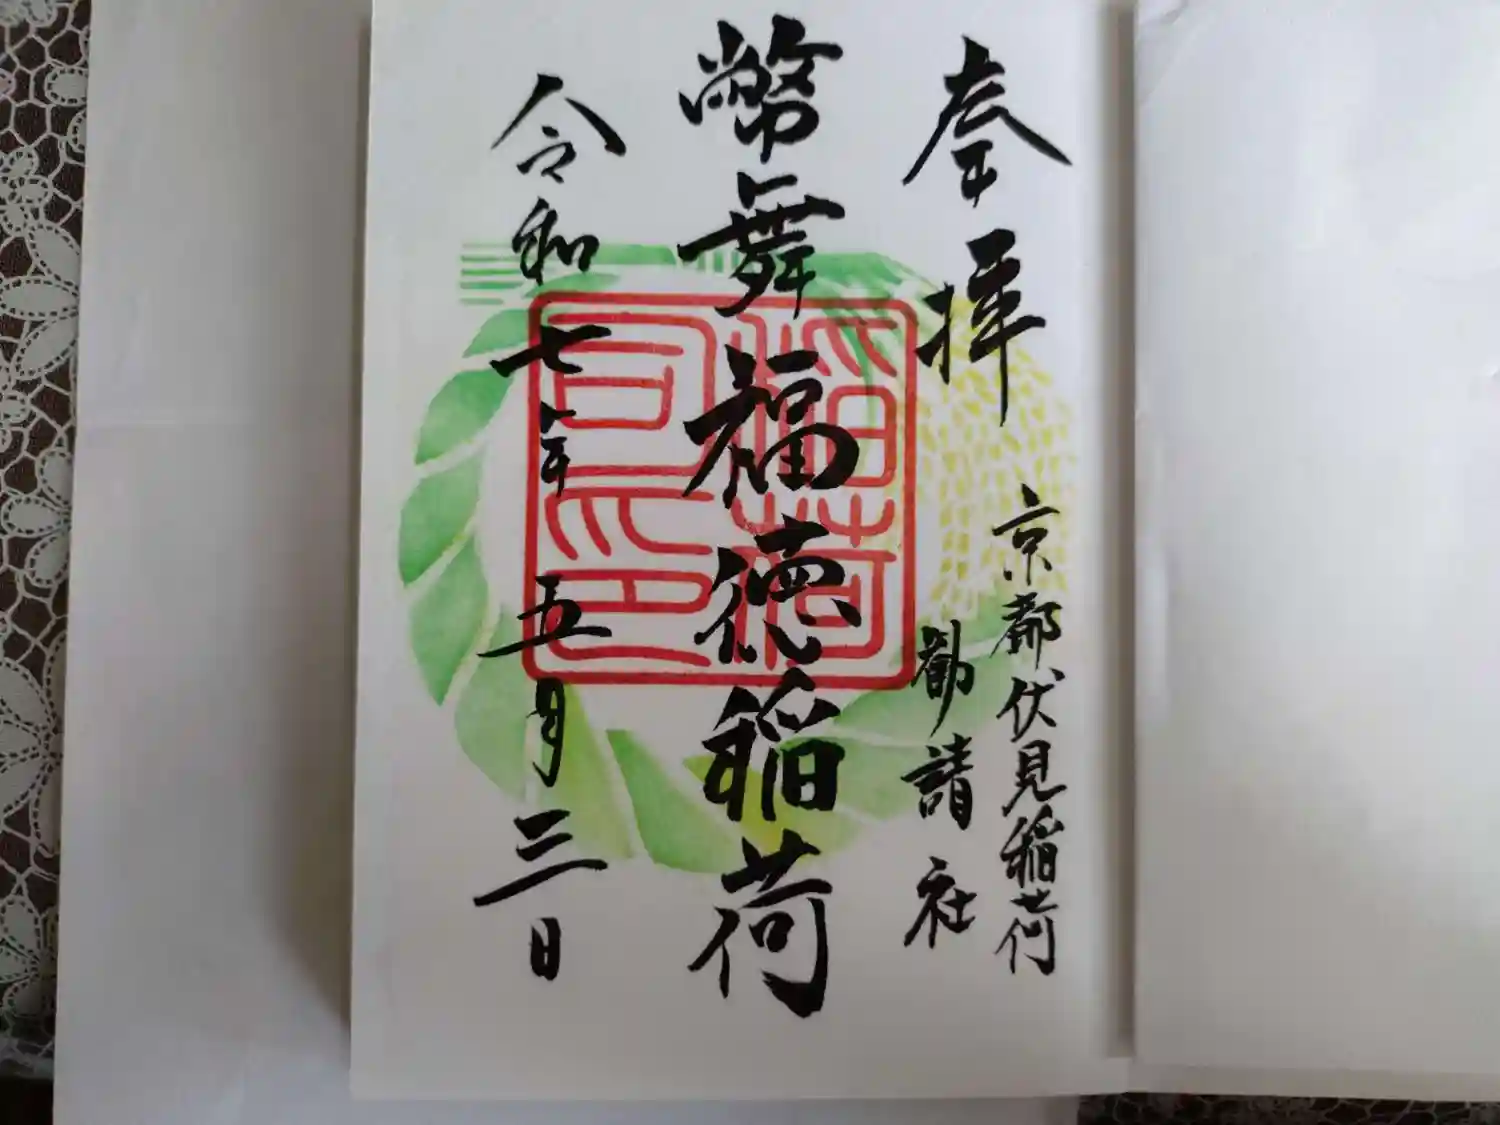 奉拝
京都伏見稲荷
勸請社
幣舞福徳稲荷
令和七年五月三日
稲荷
司印